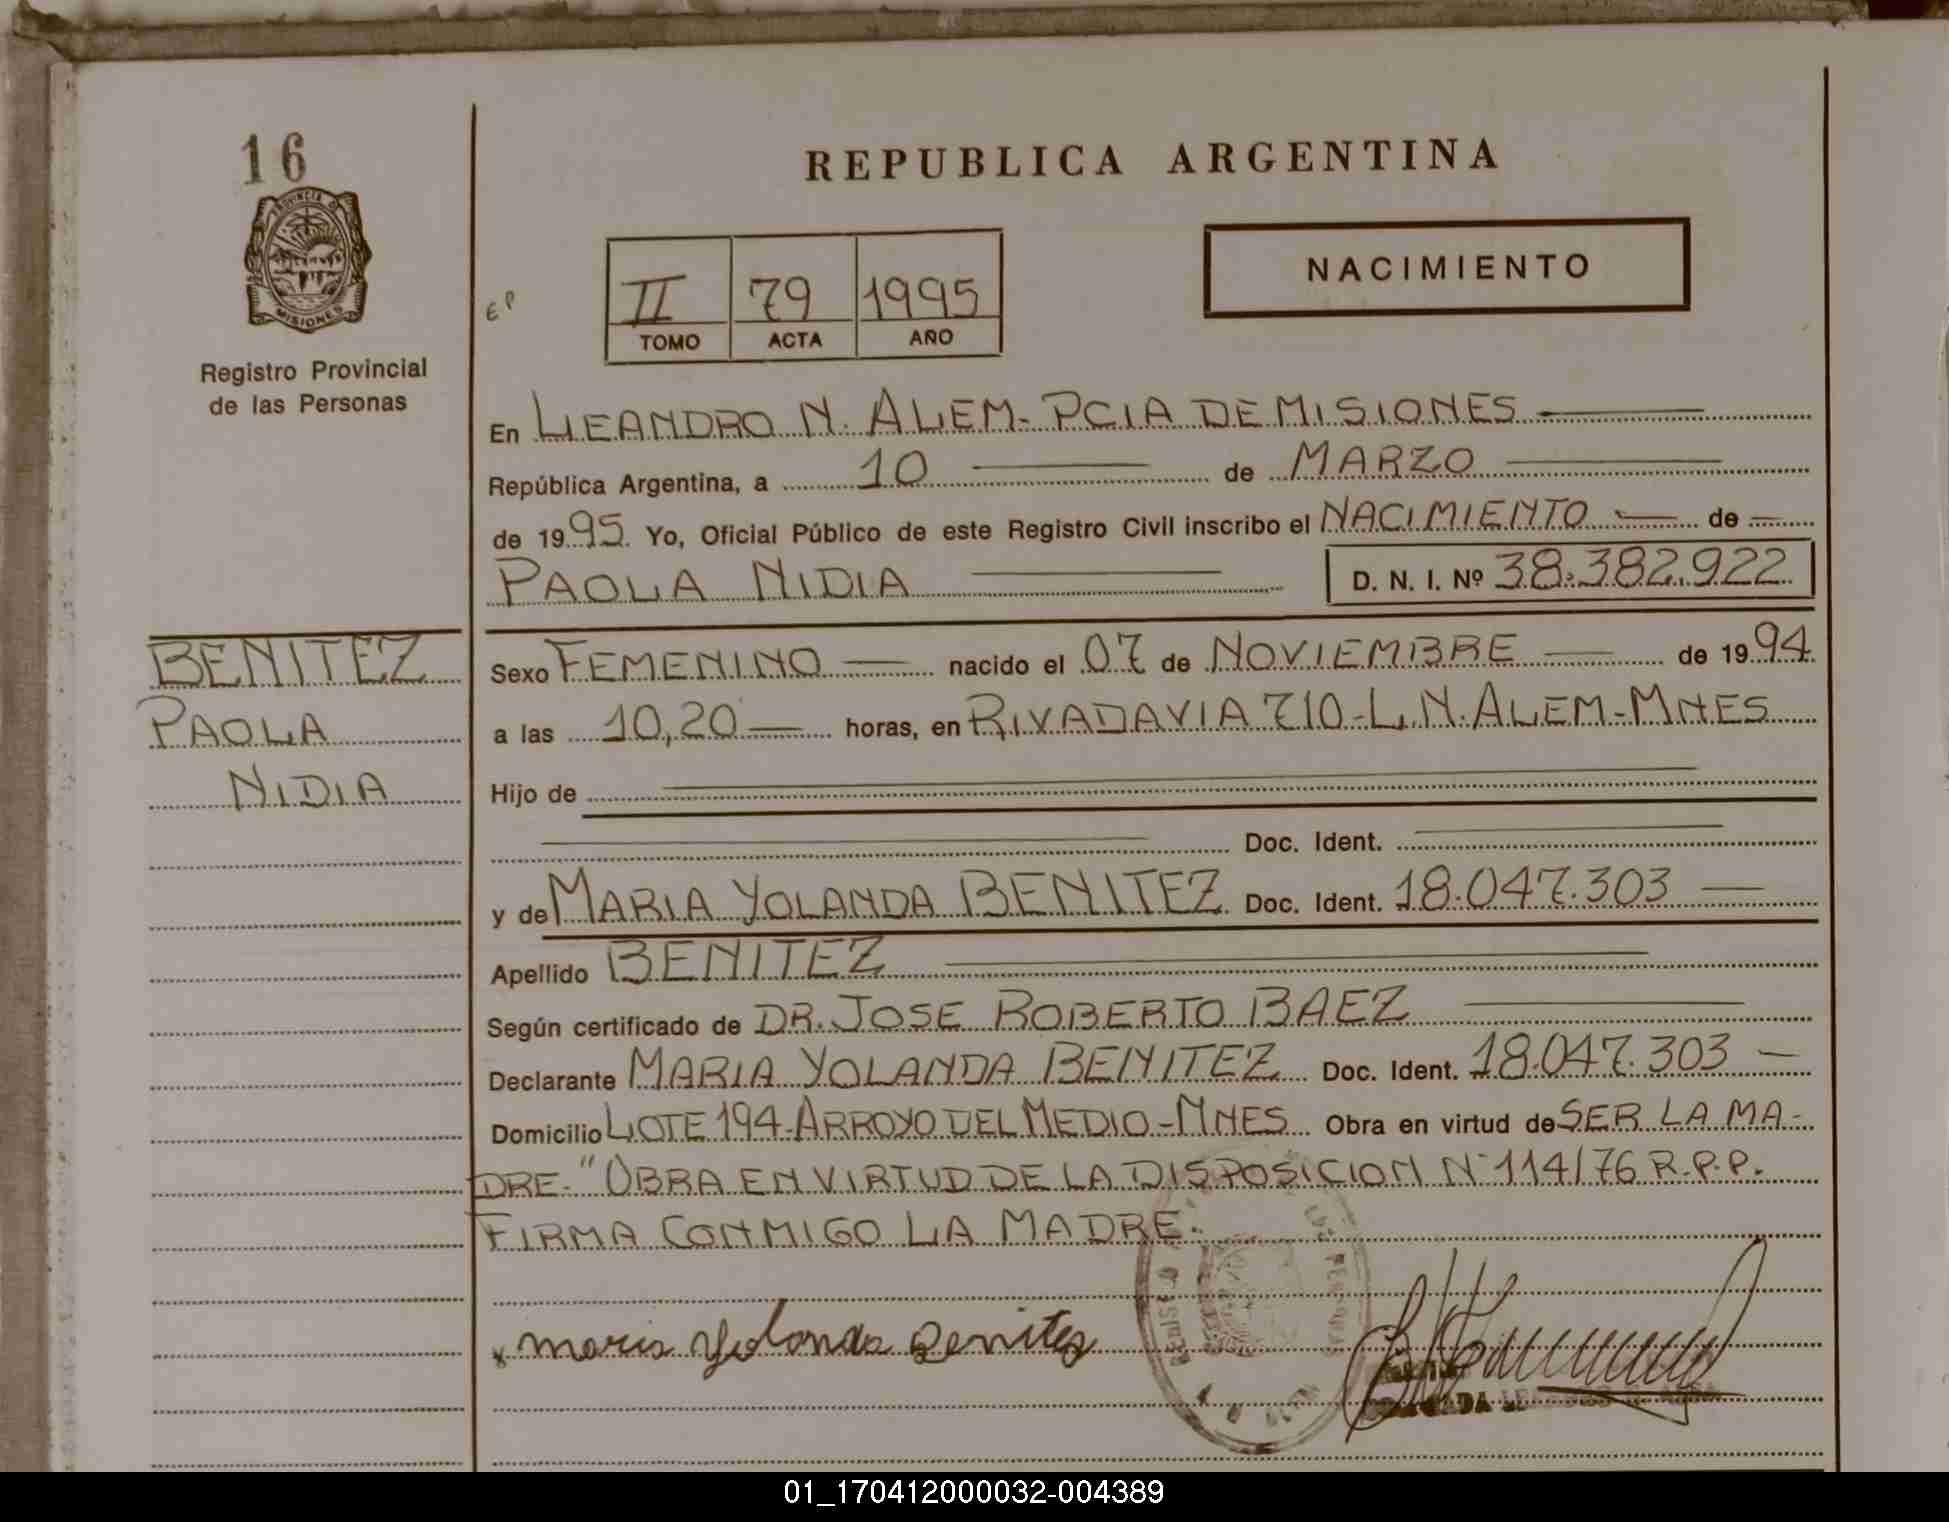 16
REPUBLICA ARGENTINA
PROVINCIA DE
MISIONES
Registro Provincial
de las Personas
NACIMIENTO
II 79 1995
TOMO ACTA AÑO
En LEANDRO N. ALEM - PCIA DE MISIONES
República Argentina, a 10 de MARZO
de 1995 Yo, Oficial Público de este Registro Civil inscribo el NACIMIENTO de
PAOLA NIDIA D. N. I. Nº 38.382.922
BENITEZ
PAOLA
NIDIA
Sexo FEMENINO nacido el 07 de NOVIEMBRE de 1994
a las 10,20 horas, en RIVADAVIA 710 - L. N. ALEM - MNES
Hijo de
Doc. Ident.
y de MARIA YOLANDA BENITEZ Doc. Ident. 18.047.303
Apellido BENITEZ
Según certificado de DR. JOSE ROBERTO BAEZ
Declarante MARIA YOLANDA BENITEZ Doc. Ident. 18.047.303
Domicilio LOTE 194 - ARROYO DEL MEDIO - MNES Obra en virtud de SER LA MA-
DRE - "OBRA EN VIRTUD DE LA DISPOSICION Nº 114/76 R.P.P.
FIRMA CONMIGO LA MADRE.
x maria yolanda Benitez
01_170412000032-004389